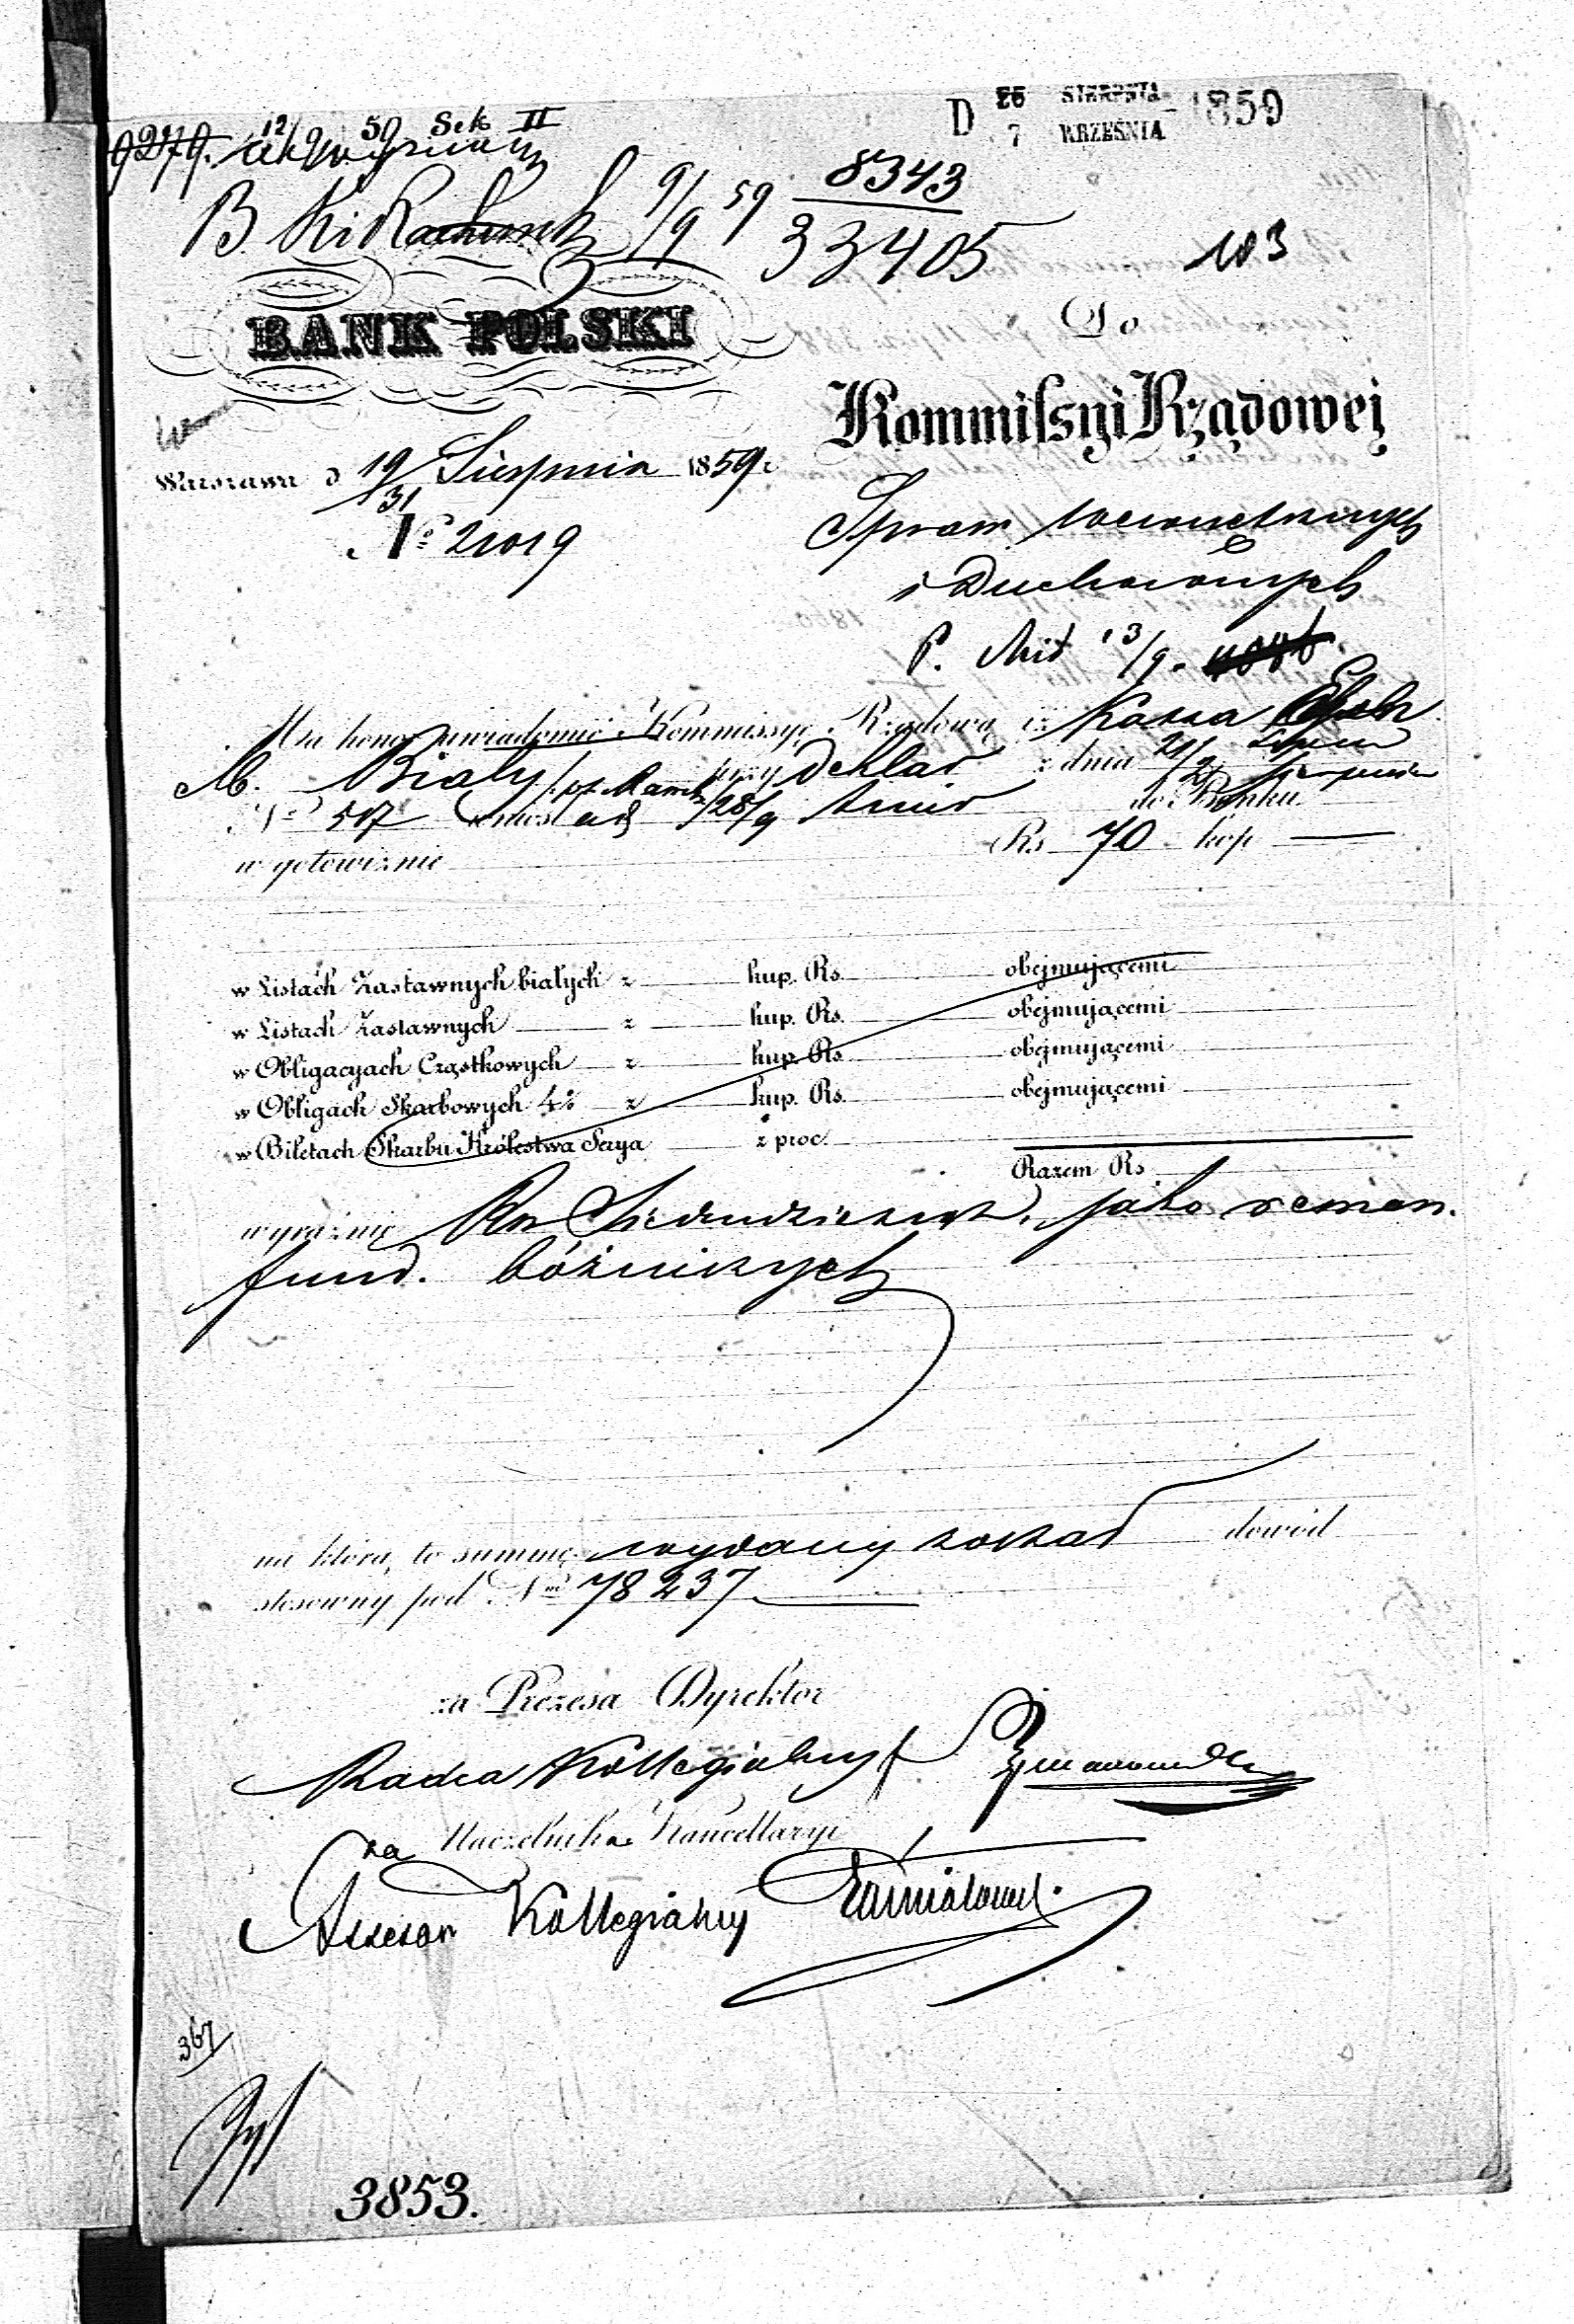 D 26 SIERPNIA 1859
7 WRZEŚNIA
9279. 12/9 59 Sek II
B. 9/9 59 8343
33405
103
BANK POLSKI
Do
Kommissyi Rządowej
Warszawa d 19/31 Sierpnia 1859 r
Nº 21019
Spraw wewnętrznych
i Duchownych
P. 13/9.
Ma honor uwiadomić Kommissyę Rządową iż Kassa
M. Biały przy Deklar z dnia
Nº 517 do Banku
w gotowiznie Rs 70 kop —
w Listach Zastawnych białych z kup. Rs. obejmującemi
w Listach Zastawnych z kup. Rs. obejmującemi
w Obligacyach Cząstkowych z kup. Rs. obejmującemi
w Obligach Skarbowych 4% z kup. Rs. obejmującemi
w Biletach Skarbu Królestwa Serya z proc.
Razem Rs
wyraźnie Rs Siedmdziesiąt, jako reman.
fund. bóżniczych
na którą to summę wydany został dowód
stosowny pod Nm 78237
za Prezesa Dyrektor
Radca Kollegialny
za Naczelnika Kancellaryi
Assesor Kollegialny
367
3853.